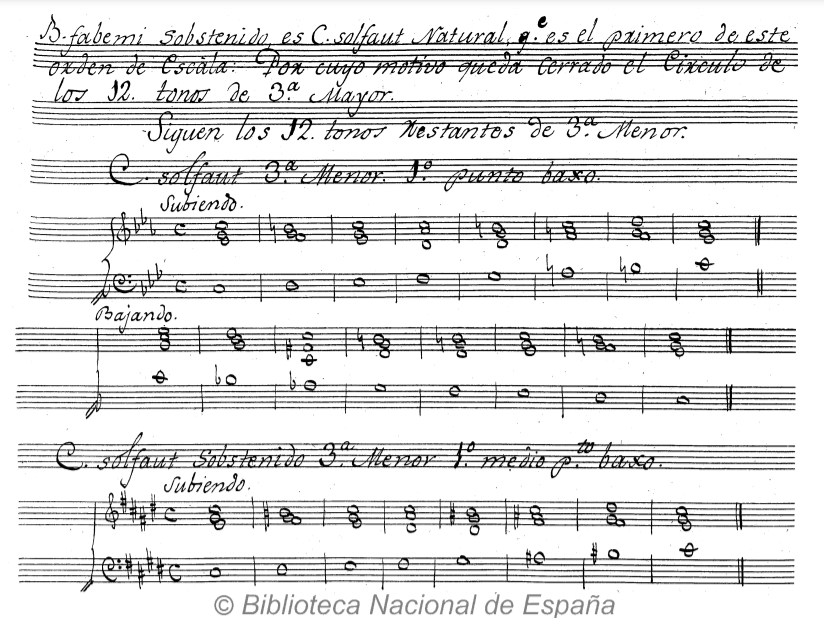 B. fabemi Sobstenido es C. solfaut Natural, q.e es el primero de este
orden de Escàla: Por cuyo motivo queda Cerrado el Circulo de
los 12. tonos de 3.a Mayor.
Siguen los 12. tonos Restantes de 3.a Menor.
C. solfaut 3.a Menor. 1.o punto baxo.
Subiendo.
Bajando.
C. solfaut Sobstenido 3.a Menor 1.o medio p.to baxo.
Subiendo.
© Biblioteca Nacional de España